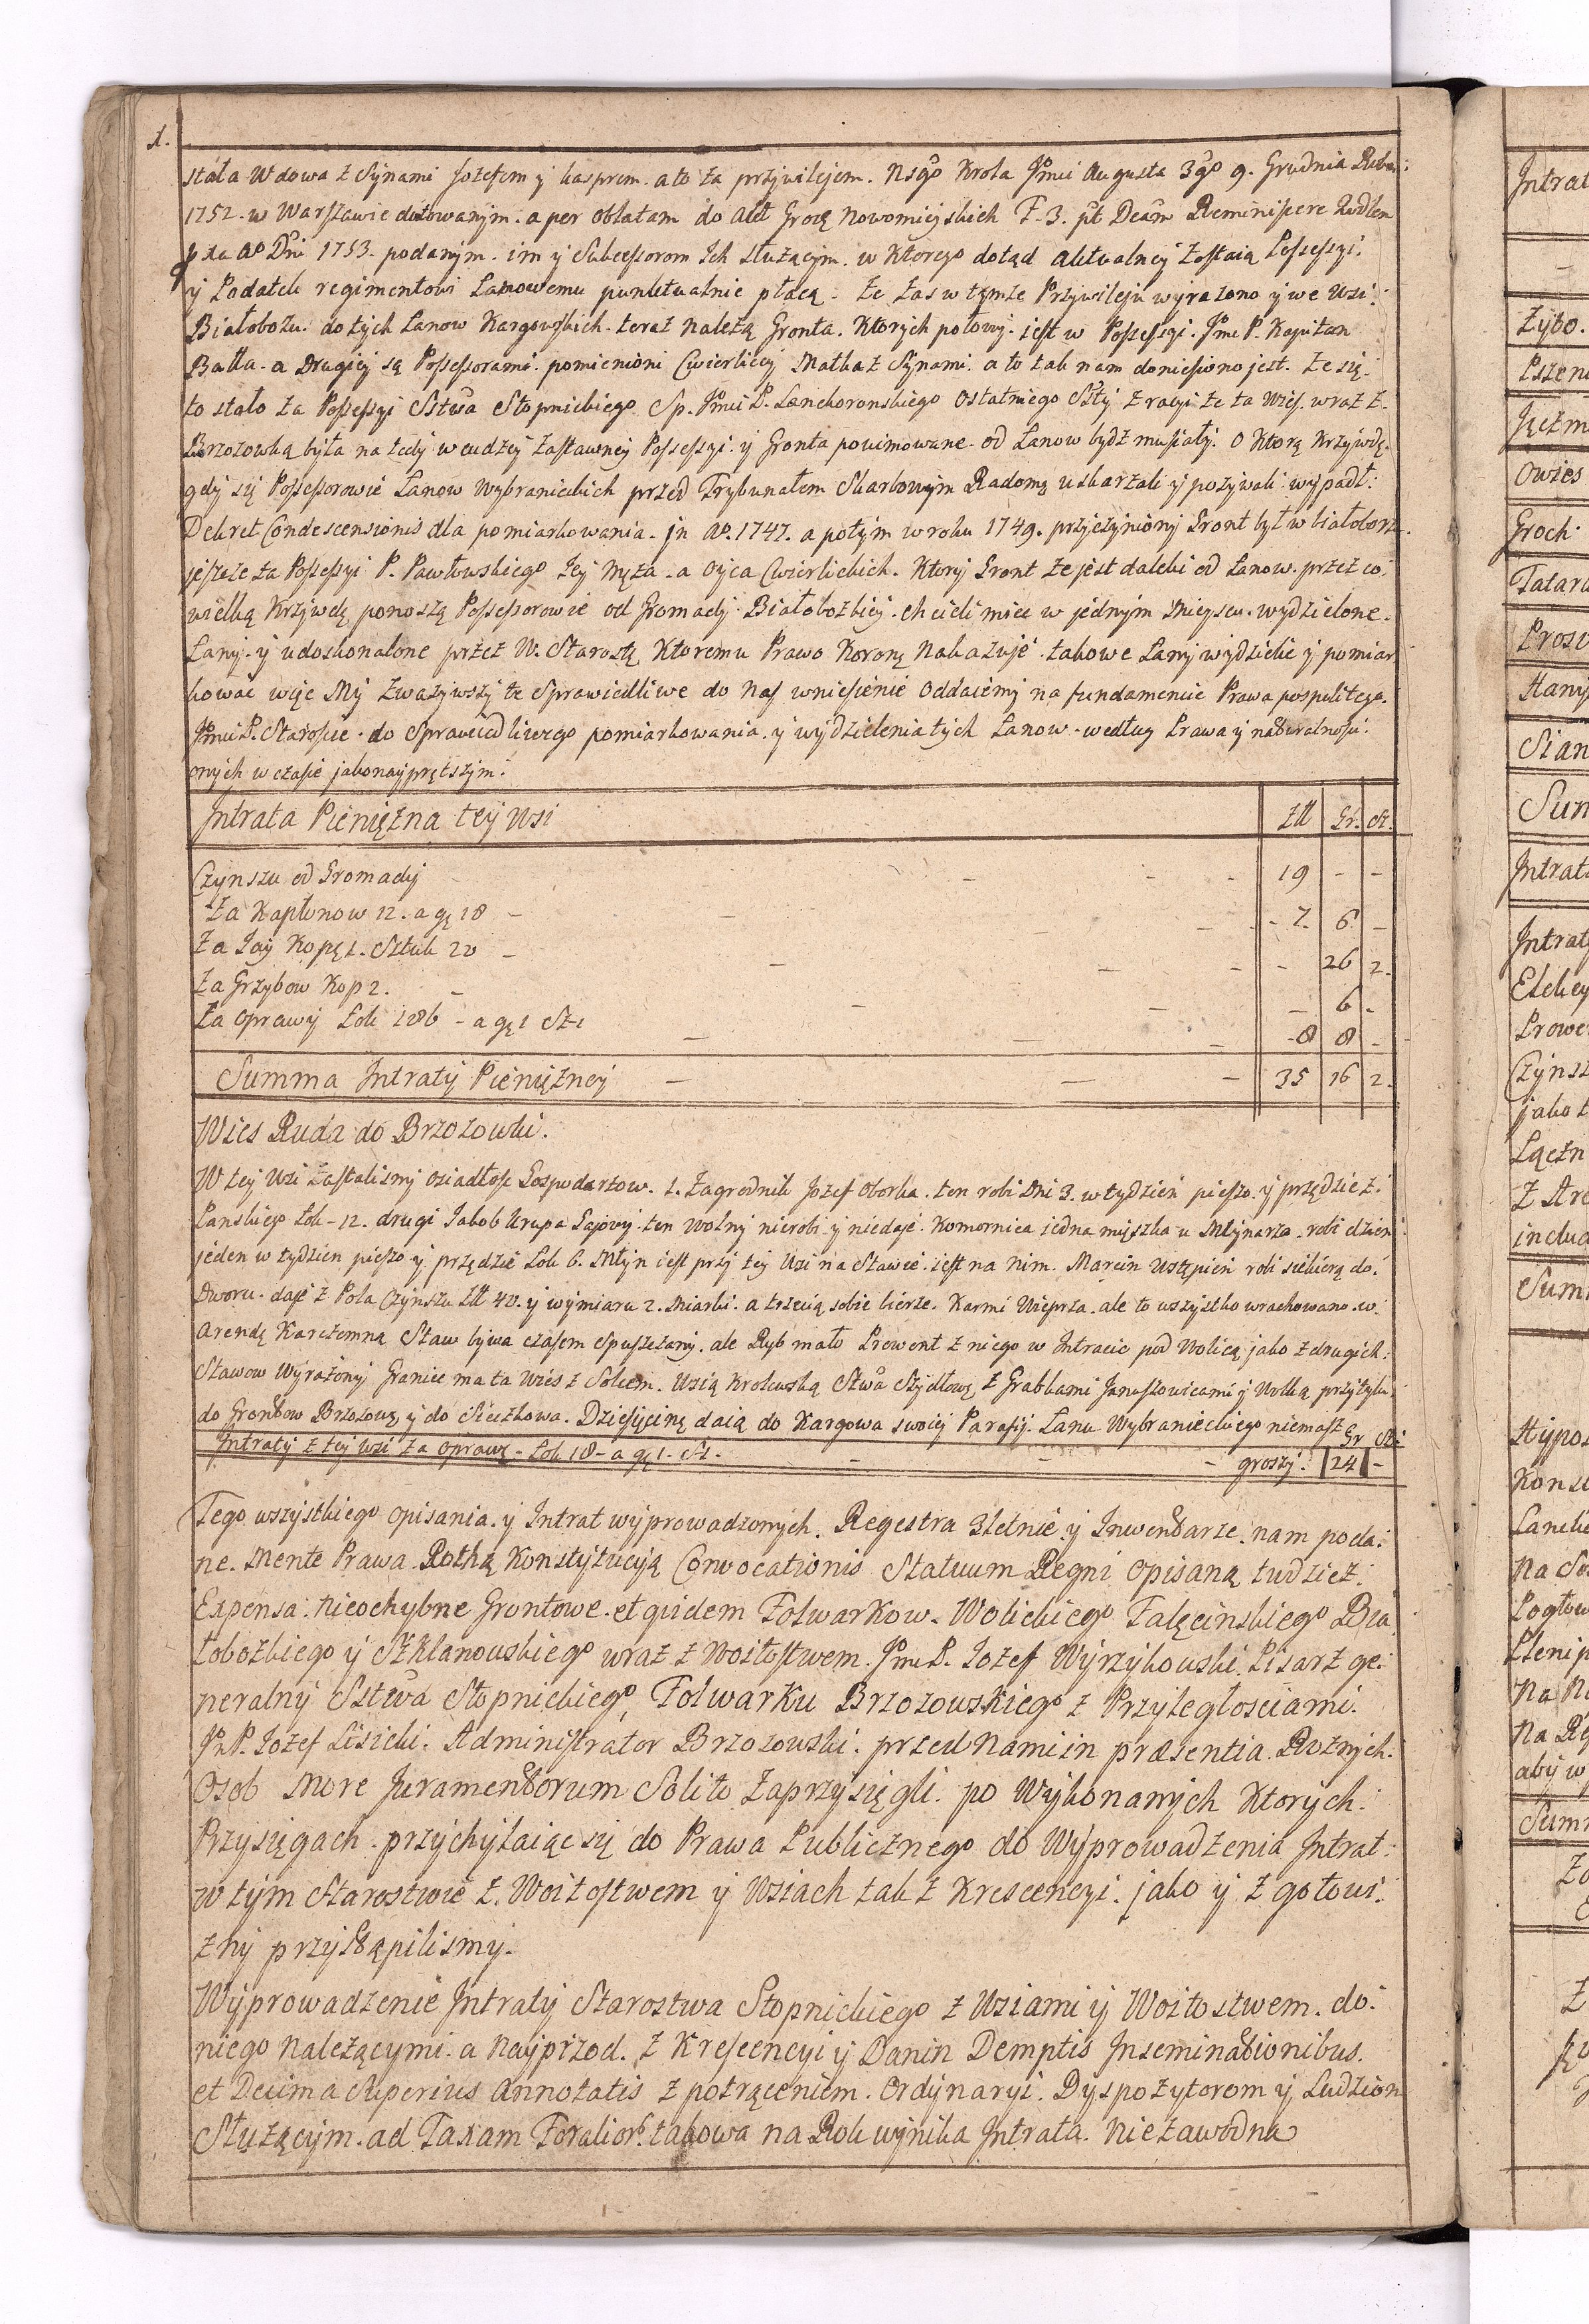 1.
stała Wdowa z Synami Jozefem y kasprem. a to za przywilejem. Nsgo Krola Jmci Augusta 3go 9. Grudnia Roku.
1752. w Warszawie datowanym. a per Oblatam do Akt Grocą Nowomieyskich F. 3. pt Dcam Reminiscere
Ao Dni 1753. podanym. im y Subcessorom Ich słuzącym. w Ktorego dotąd aktualney zostaią Possessyi.
y Podatek regimentowi Łanowemu punktualnie płacą. Ze zas w tymze Przywileju wyrazono y we Wsi.
Białobozu. do tych Łanow Kargowskich. teraz nalezą Gronta. Ktorych połowy. jest w Possessyi. Jmc P. Kapitan
Batka. a Drugiey są Possessorami. pomienioni Cwierliccy Matka z Synami. a to tak nam doniesiono jest. ze się.
to stało za Possessyi Sstwa Stopnickiego Sp. Jmci P. Lanckoronskiego Ostatniego Ssty z racyi ze ta Wies. wraz z.
Brzozowką była na tedy w cudzey zastawney Possessyi. y Gronta poujmowane. od Łanow bydz musiały. O Ktorą Krzywdę.
gdy się Possessorowie Łanow Wybranieckich przed Trybunałem Skarbowym Radomą uskarzali y pozywali wypadł:
Dekret Condescensionis dla pomiarkowania. jn Ao. 1747. a potym w roku 1749. przyczyniony Gront był w białoborz.
jeszcze za Possessyi P. Pawłowskiego Jey Męza. a Oyca Cwierlickich. Ktory Gront ze jest daleki od Łanow. przez co.
wielką Krzywdę ponoszą Possessorowie od Gromady. Białobozkiey. chcieli miec w jednym Mieyscu. wydzielone.
Łany. y udoskonalone przez W. Starostę Ktoremu Prawo Koronę Nakazuje. takowe Łany wydzielic y pomiar
kowac więc My Zwazywszy te Sprawiedliwe do Nas wniesienie Oddaiemy na fundamencie Prawa pospolitego.
Jmci P. Staroscie. do Sprawiedliwego pomiarkowania. y wydzielenia tych Łanow. według Prawa y naturalnosci.
onych w czasie jaknayprętszym.
Jntrata Pienięzna tey Wsi Złł Gr. Sz.
Czynszu od Gromady - - - 19 - -
Za Kapłonow 12. a gę 18 - - - 7. 6 -
Za Jay Kopę 1. Sztuk 20 - - - - 26 2.
Za Grzybow Kop 2. - - - - 6 -
Za oprawy Łok 186 - a gę 1 Sz 1 - - - 8 8 -
Summa Jntraty Pienięzney - - - 35 16 2.
Wies Ruda do Brzozowki.
W tey Wsi Zastalismy osiadłosc Gospodarzow. 1. Zagrodnik Jozef Oborka. ten robi Dni 3. w tydzien pieszo. y przędzie z.
Panskiego Łok - 12. drugi Jakob Krupa Gajowy. ten Wolny nierobi. y niedaje. Komornica iedna mieszka u Młynarza. robi dzien
jeden w tydzien pieszo y przędzie Łok 6. Młyn iest przy tey Wsi na Stawie. iest na nim. Marcin Wstępien robi siekierą do.
Dworu. daje z Pola Czynszu Złł 40. y wymiaru 2. Miarki. a trzecią sobie bierze. Karmi Wieprza. ale to wszystko wrachowano. w.
Arendę Karczemną Staw bywa czasem Spuszczany. ale Ryb mało Prowent z niego w Intracie pod Wolicą jako z drugich.
Stawow Wyrazony Granice ma ta Wies z Solcem. Wsią Krolewską Stwa Szydłowę z Grabkami Januszowicami y Wolką przytyka.
do Grontow Brzozowę y do Sieczkowa. Dziesięcinę daią do Kargowa swoiey Parafij. Łanu Wybranieckiego niemasz Gr Sz
Jntraty z tey Wsi za oprawę - Łok 18 - a gę 1. Sz 1. - - - groszy. 24 -
Tego wszystkiego Opisania. y Intrat wyprowadzonych. Regestra 3letnie y Inwentarze. nam poda.
ne. Mente Prawa Rothą Konstytucyą Convocationis Statuum Regni Opisaną tudziez.
Expensa. nieochybne Grontowe. et quidem Folwarkow. Wolickiego Falęcinskiego Bia
łobozkiego y Szklanowskiego wraz z Woitostwem. Jmc P. Jozef Wyrzykowski. Pisarz ge.
neralny Sstwa Stopnickiego, Folwarku Brzozowskiego z Przyległosciami.
Jm P. Jozef Lisicki. Administrator Brzozowski. przed Nami in præsentia. Roznych.
Osob More Juramentorum Solito Zaprzysięgli. po Wykonanych Ktorych.
Przysięgach. przychylaiąc się do Prawa Publicznego do Wyprowadzenia Jntrat.
w tym Starostwie z. Woitostwem y Wsiach tak z Krescencyi. jako y z gotowi.
zny przystąpilismy.
Wyprowadzenie Jntraty Starostwa Stopnickiego z Wsiami y Woitostwem. do.
niego Nalezącymi. a Nayprzod. z Krescencyi y Danin Demptis Jnseminationibus.
et Decima Superius Annotatis z potrąceniem. Ordynaryi. Dyspozytorom y Ludziom
Słuzącym. ad Taxam Foralior. takowa na Rok wynika Jntrata. Niezawodna